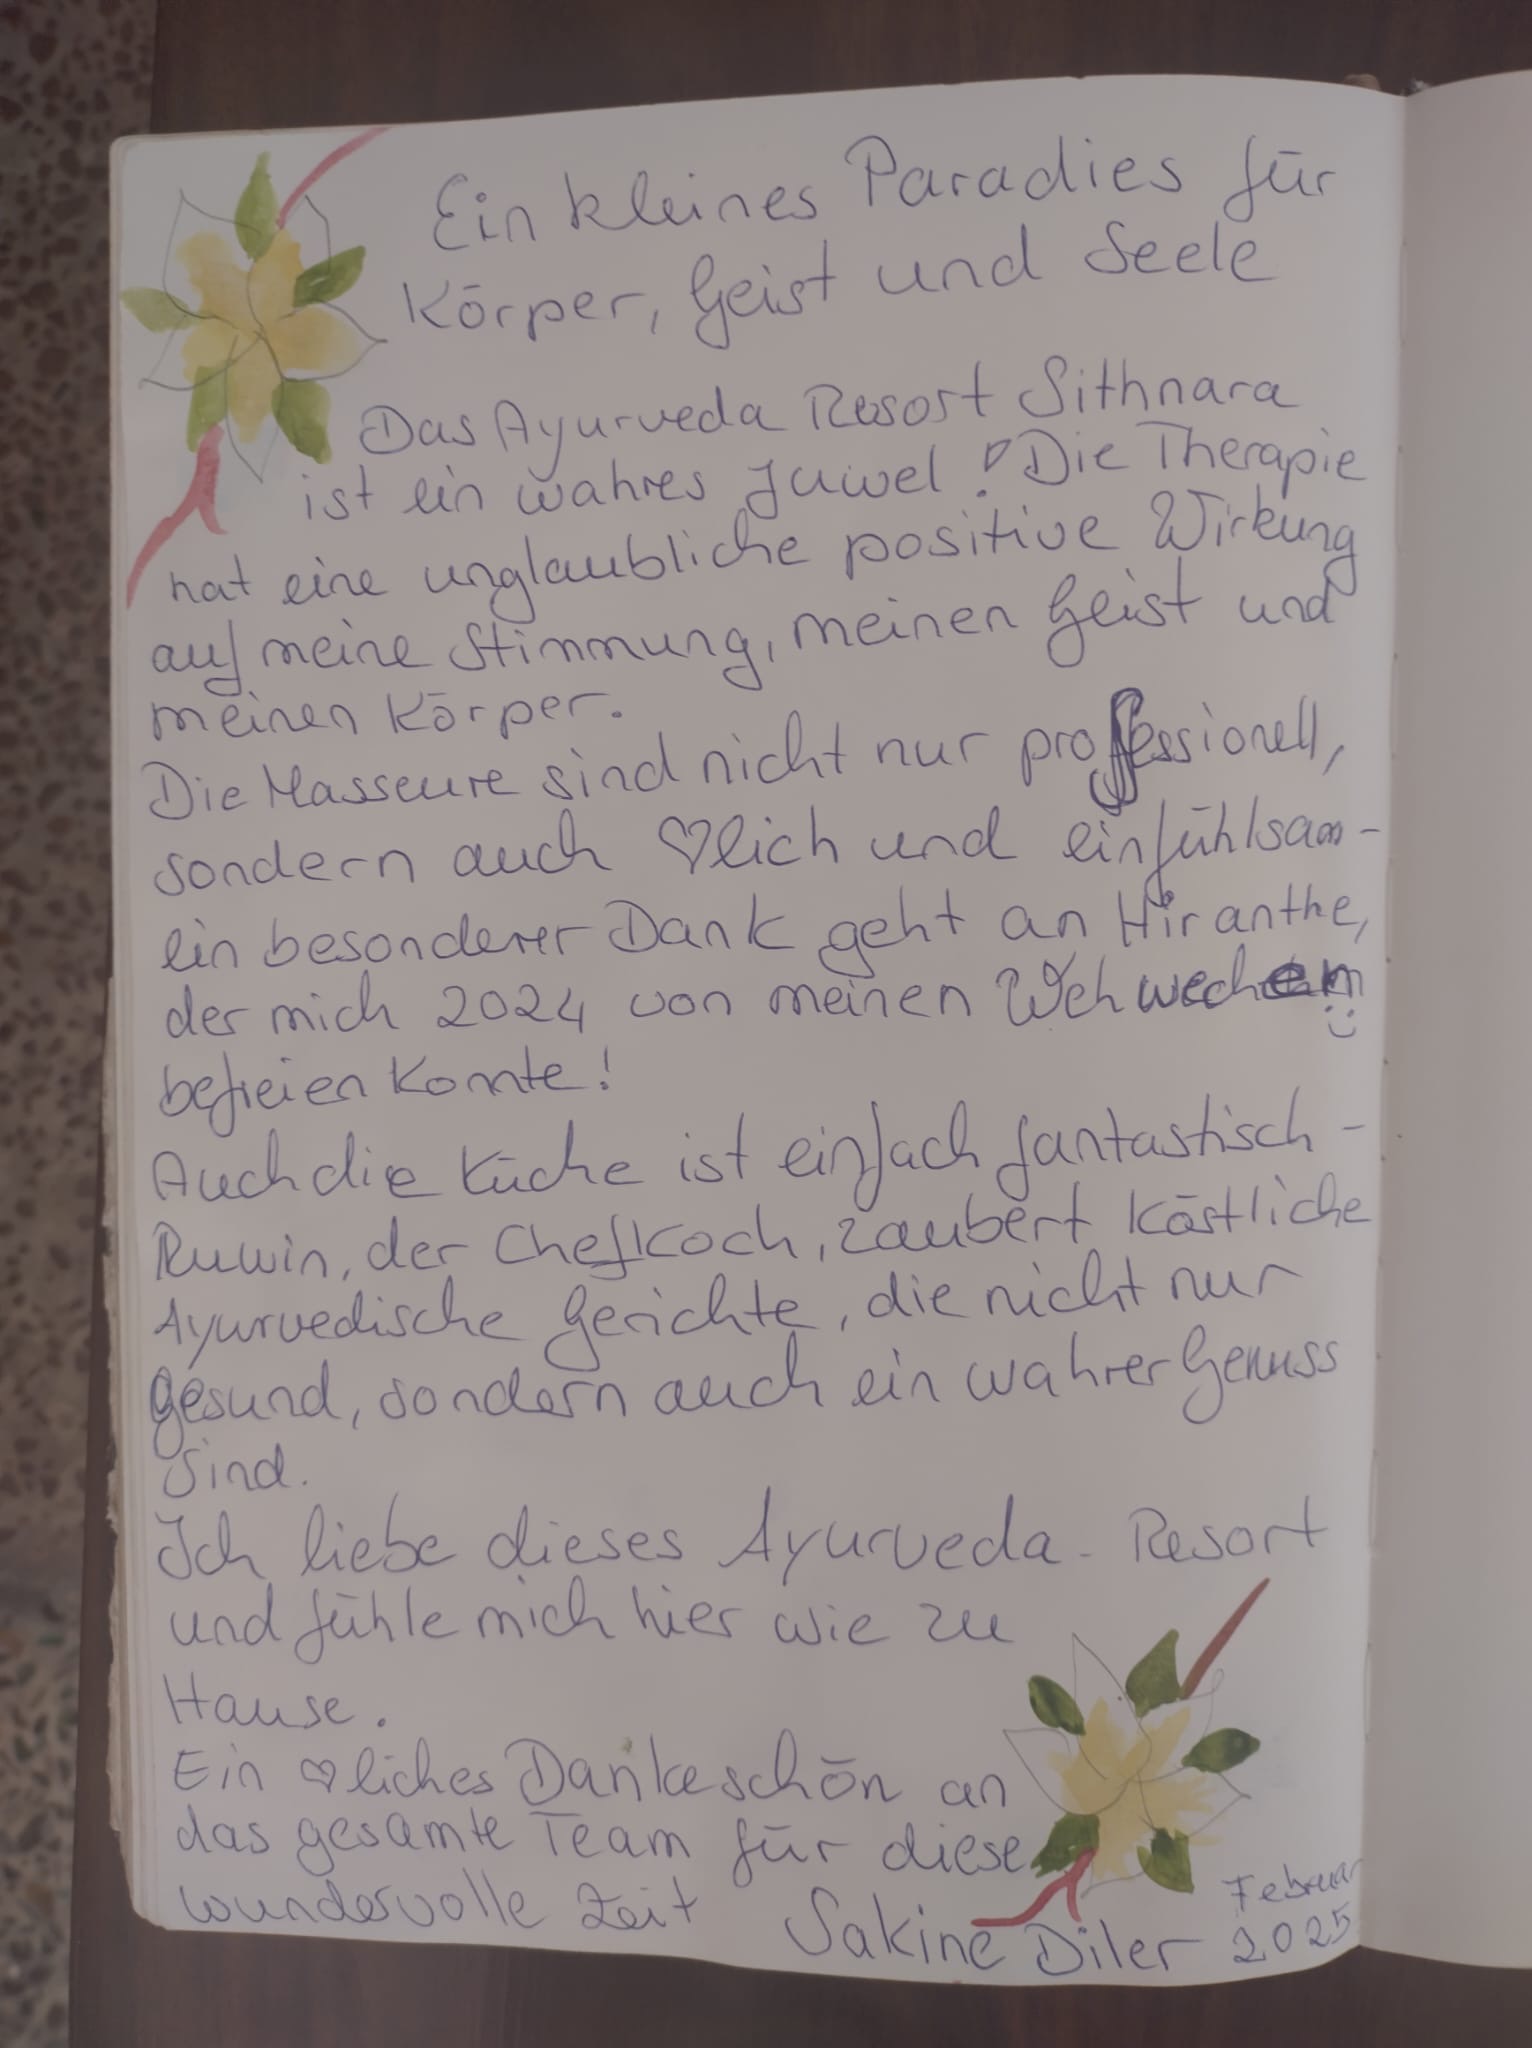 Ein kleines Paradies für
Körper, Geist und Seele
Das Ayurveda Resort Sithnara
ist ein wahres Juwel! Die Therapie
hat eine unglaubliche positive Wirkung
auf meine Stimmung, meinen Geist und
meinen Körper.
Die Masseure sind nicht nur professionell,
sondern auch ♡lich und einfühlsam -
ein besonderer Dank geht an Hiranthe,
der mich 2024 von meinen Wehwechen
befreien konnte!
Auch die Küche ist einfach fantastisch -
Ruwin, der Chefkoch, zaubert köstliche
Ayurvedische Gerichte, die nicht nur
gesund, sondern auch ein wahrer Genuss
sind.
Ich liebe dieses Ayurveda - Resort
und fühle mich hier wie zu
Hause.
Ein ♡liches Dankeschön an
das gesamte Team für diese
wundervolle Zeit
Sakine Diler
Februar
2025